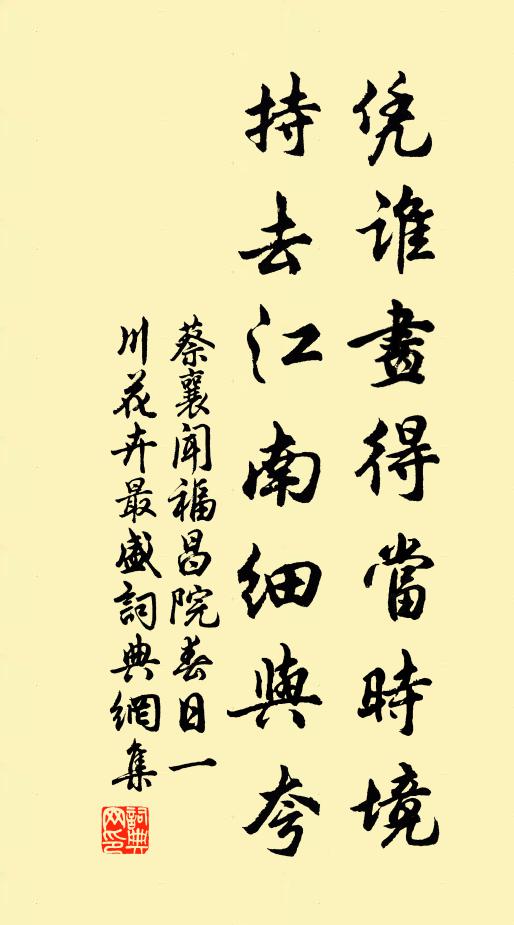 凭谁畫得當時境
持去江南细與夸
蔡襄闻福昌院春日一
川花卉最盛詞典網集
詞典网印